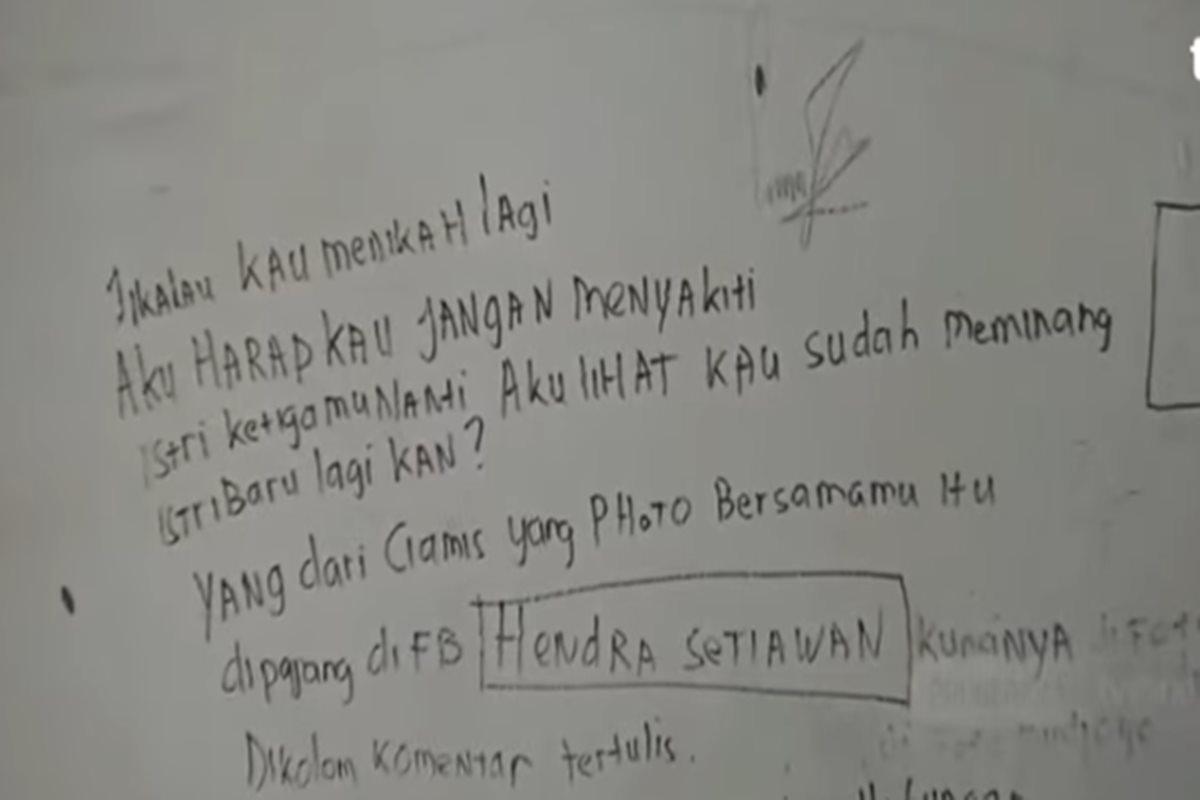 JIKALAU KAU MENIKAH LAGI
AKU HARAP KAU JANGAN MENYAKITI
ISTRI KETIGAMU NANTI AKU LIHAT KAU SUDAH MEMINANG
ISTRI BARU LAGI KAN?
YANG dari Ciamis yang PHOTO Bersamamu Itu
dipajang di FB HENDRA SETIAWAN KUNCINYA
Dikolom Komentar tertulis.